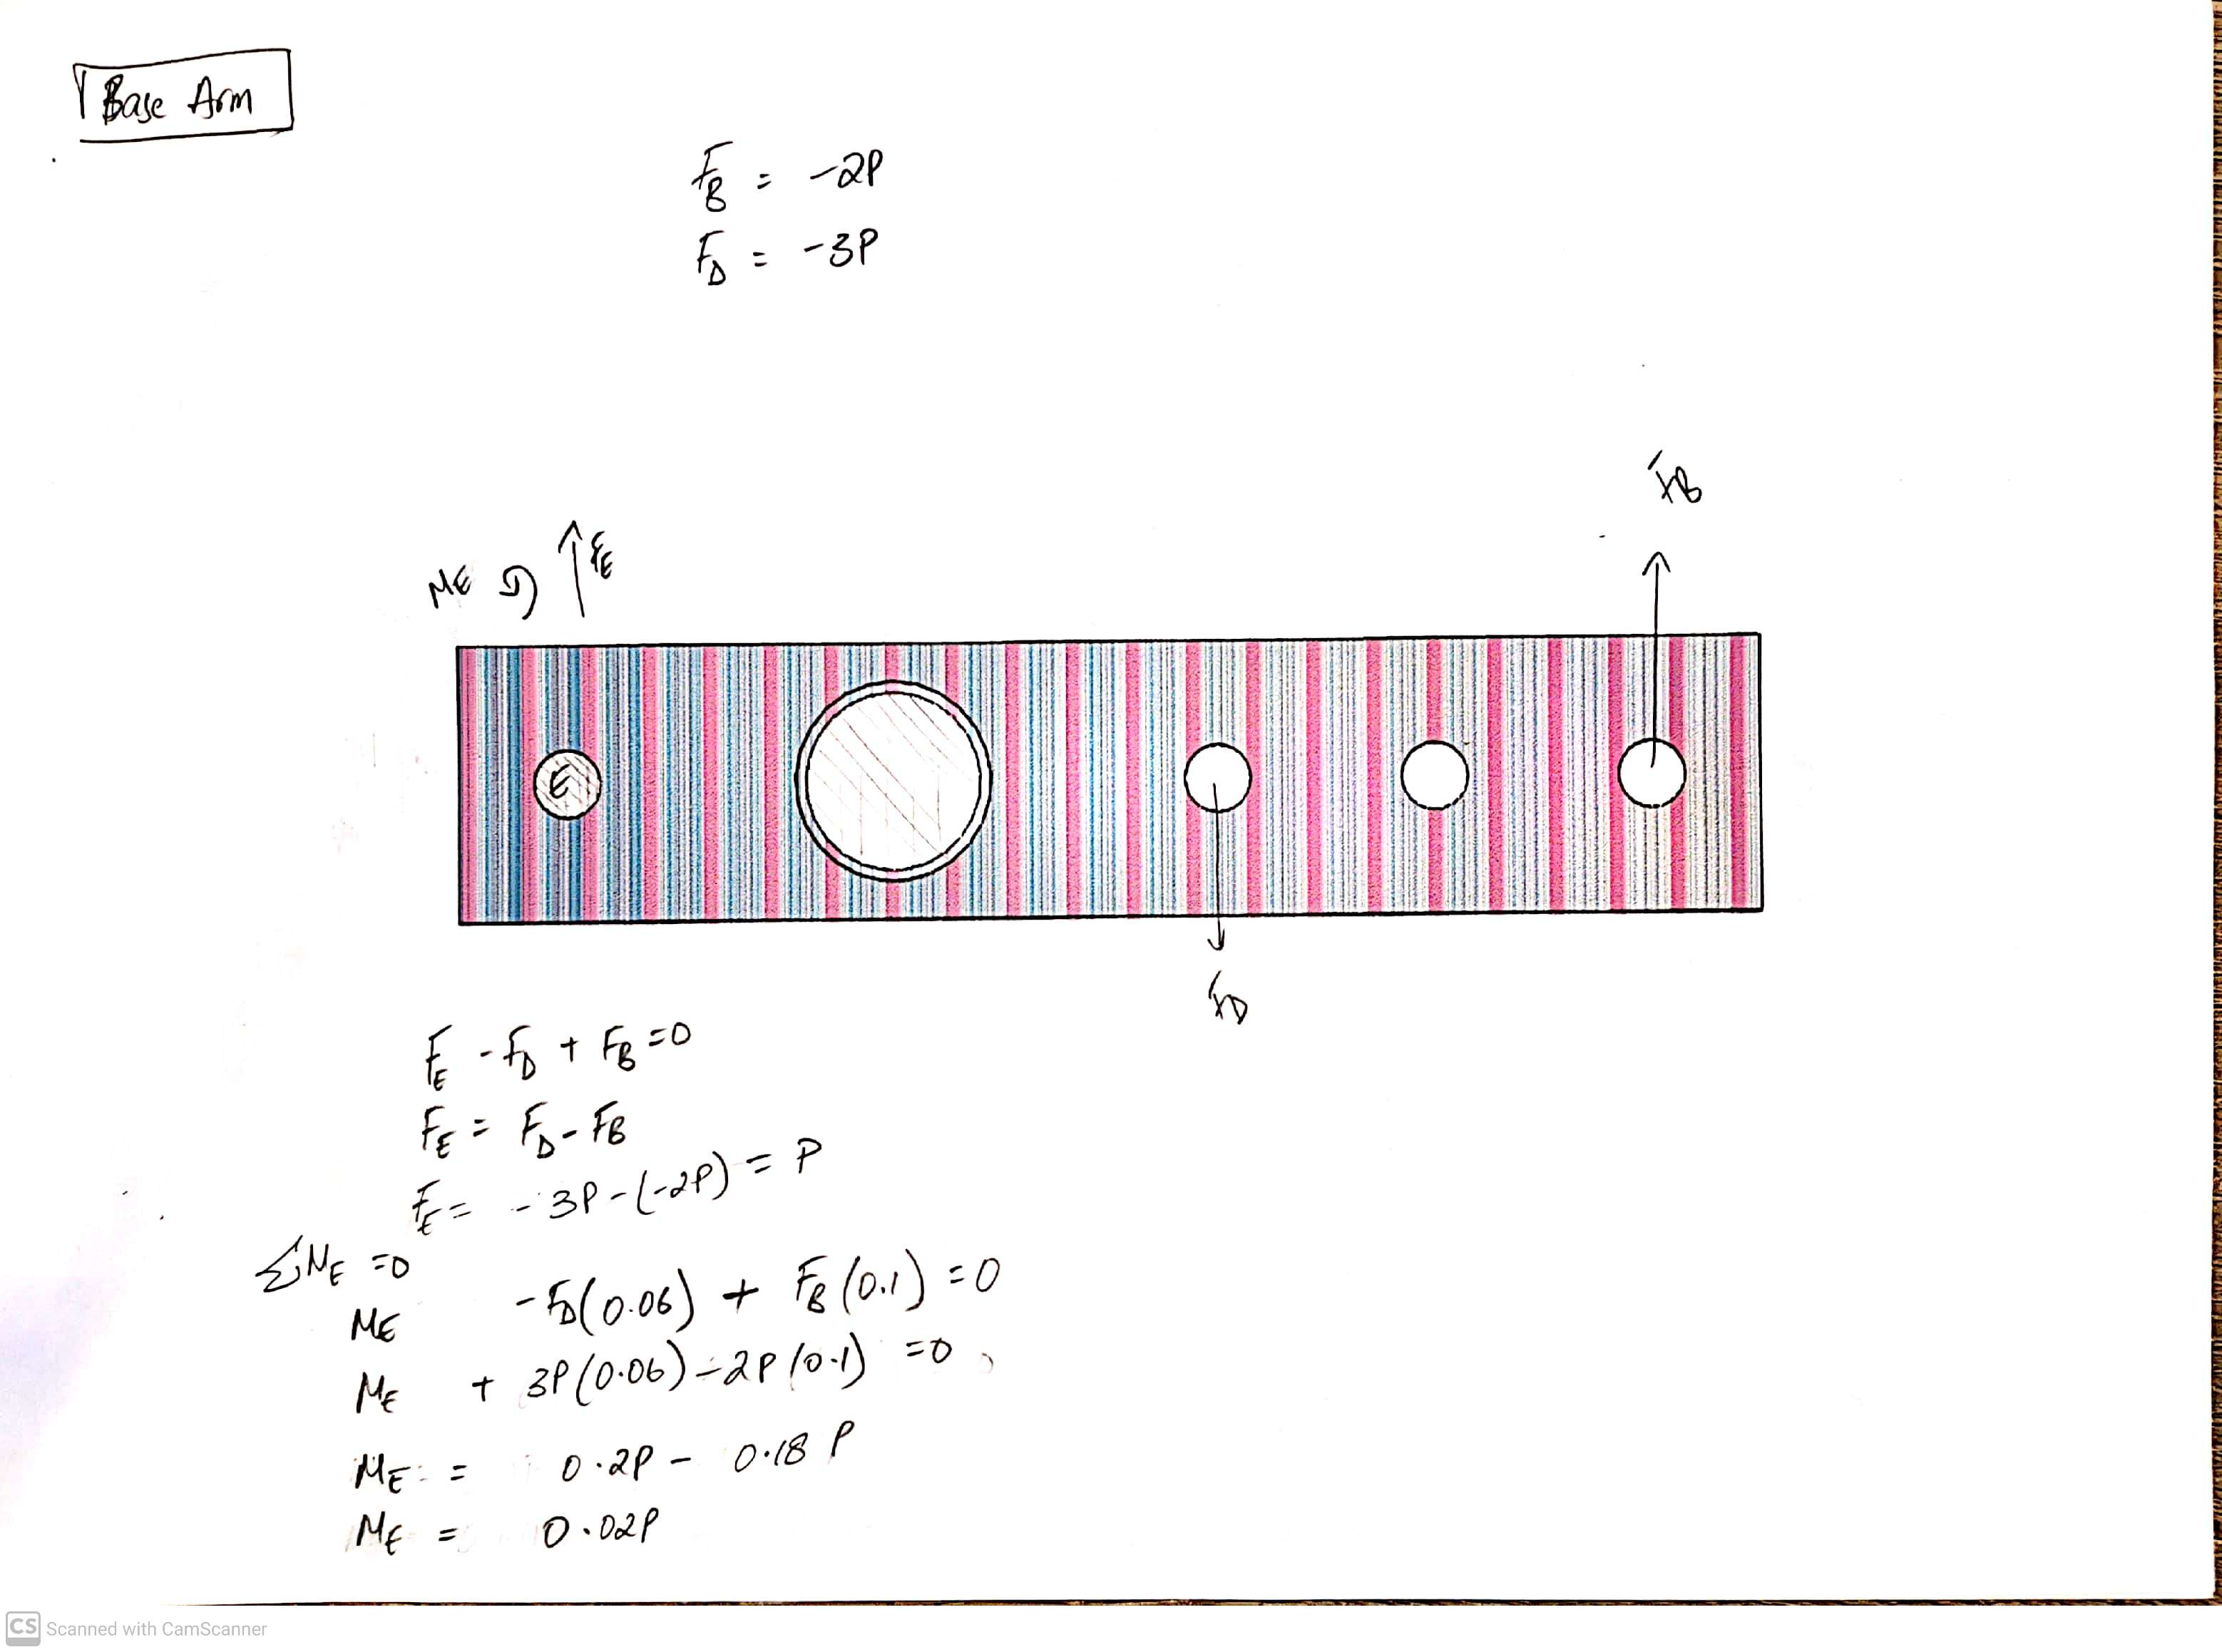 Base Arm
F_B = -2P
F_D = -3P
F_B
M_E F_E
E
F_D
F_E - F_D + F_B = 0
F_E = F_D - F_B
F_E = -3P - (-2P) = P
ΣM_E = 0
M_E - F_D(0.06) + F_B(0.1) = 0
M_E + 3P(0.06) - 2P(0.1) = 0
M_E = 0.2P - 0.18P
M_E = 0.02P
CS Scanned with CamScanner